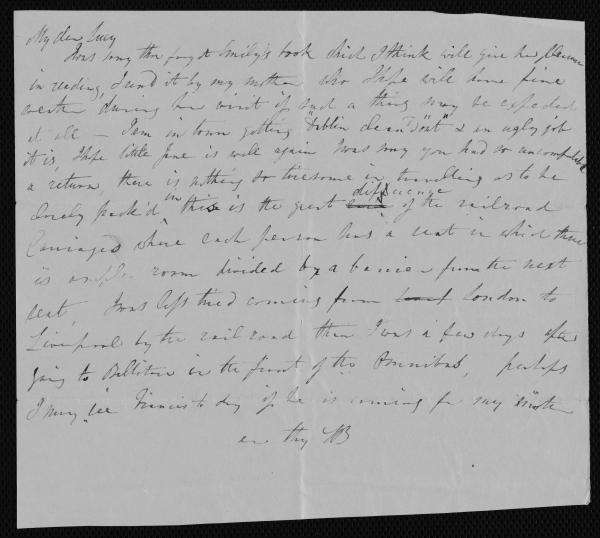 My dear Lucy
I was sorry thou forgot Emily's book which I think will give her pleasure
in reading, I send it by my mother who I hope will have fine
weather during her visit if such a thing may be expected
at all – I am in town getting "Dublin clean'd out" & an ugly job
it is, I hope little Jane is well again I was sorry you had so uncomfortable
a return, there is nothing so tiresome in travelling as to be
closely pack'd, in this is the great difference of the railroad
Carriages where each person has a seat in which there
is ample room divided by a barrier from the next
seat, I was less tired coming from London to
Liverpool by the rail road than I was a few days after
going to Ballitore in the front of the Omnibus, perhaps
I may see Francis to day if he is coming for my mother
thy